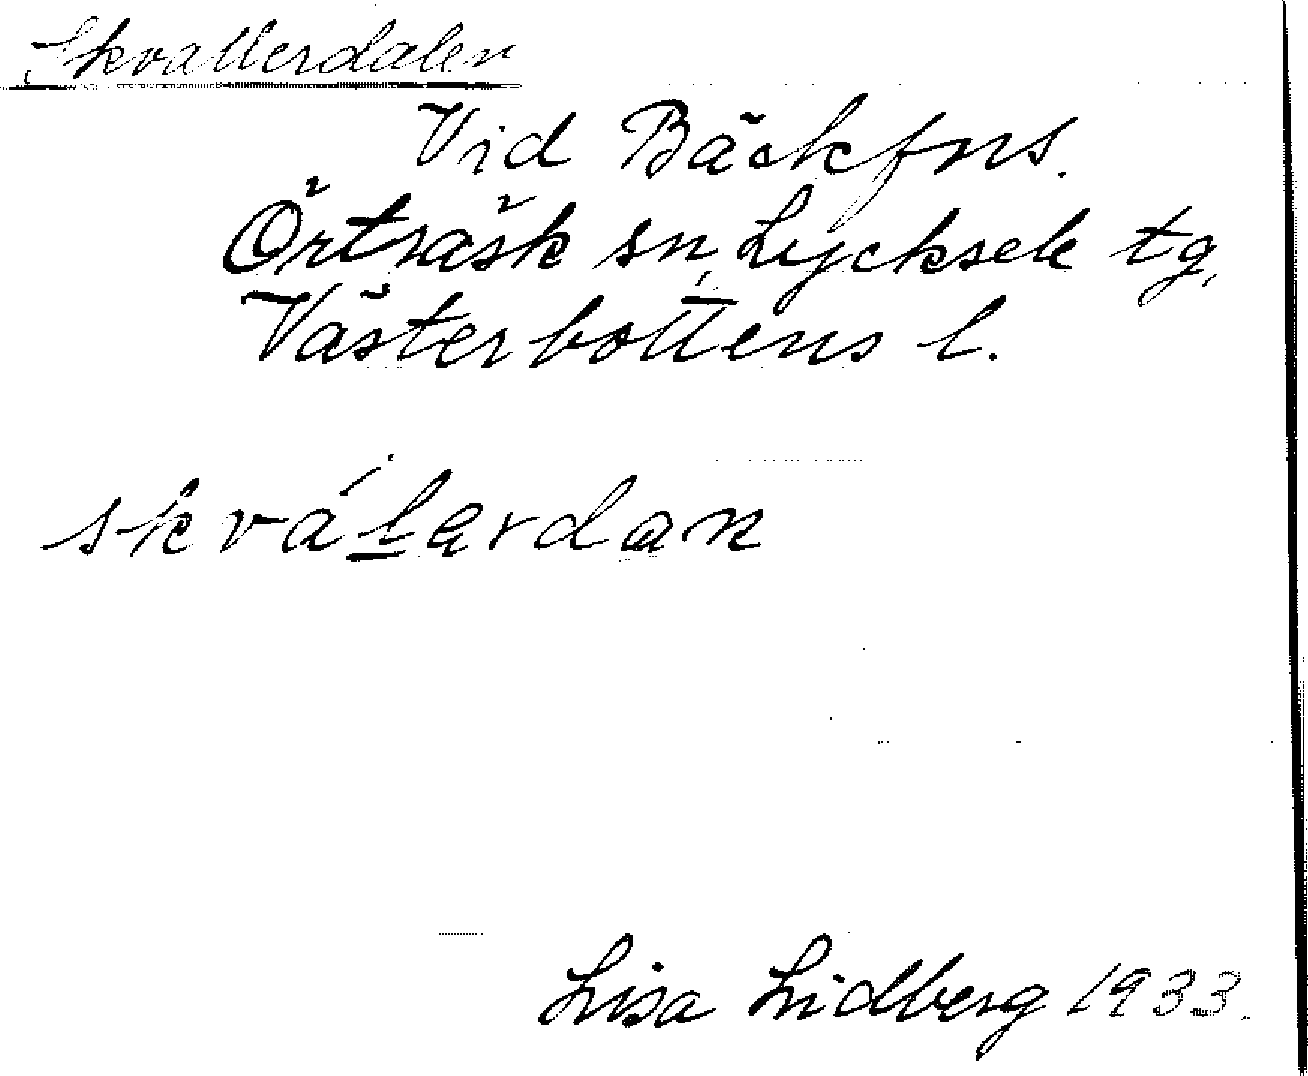 Skvallerdalen
Vid Bäckfors.
Örträsk sn, Lycksele tg,
Västerbottens l.
skválerdan
Lisa Lidberg 1933.